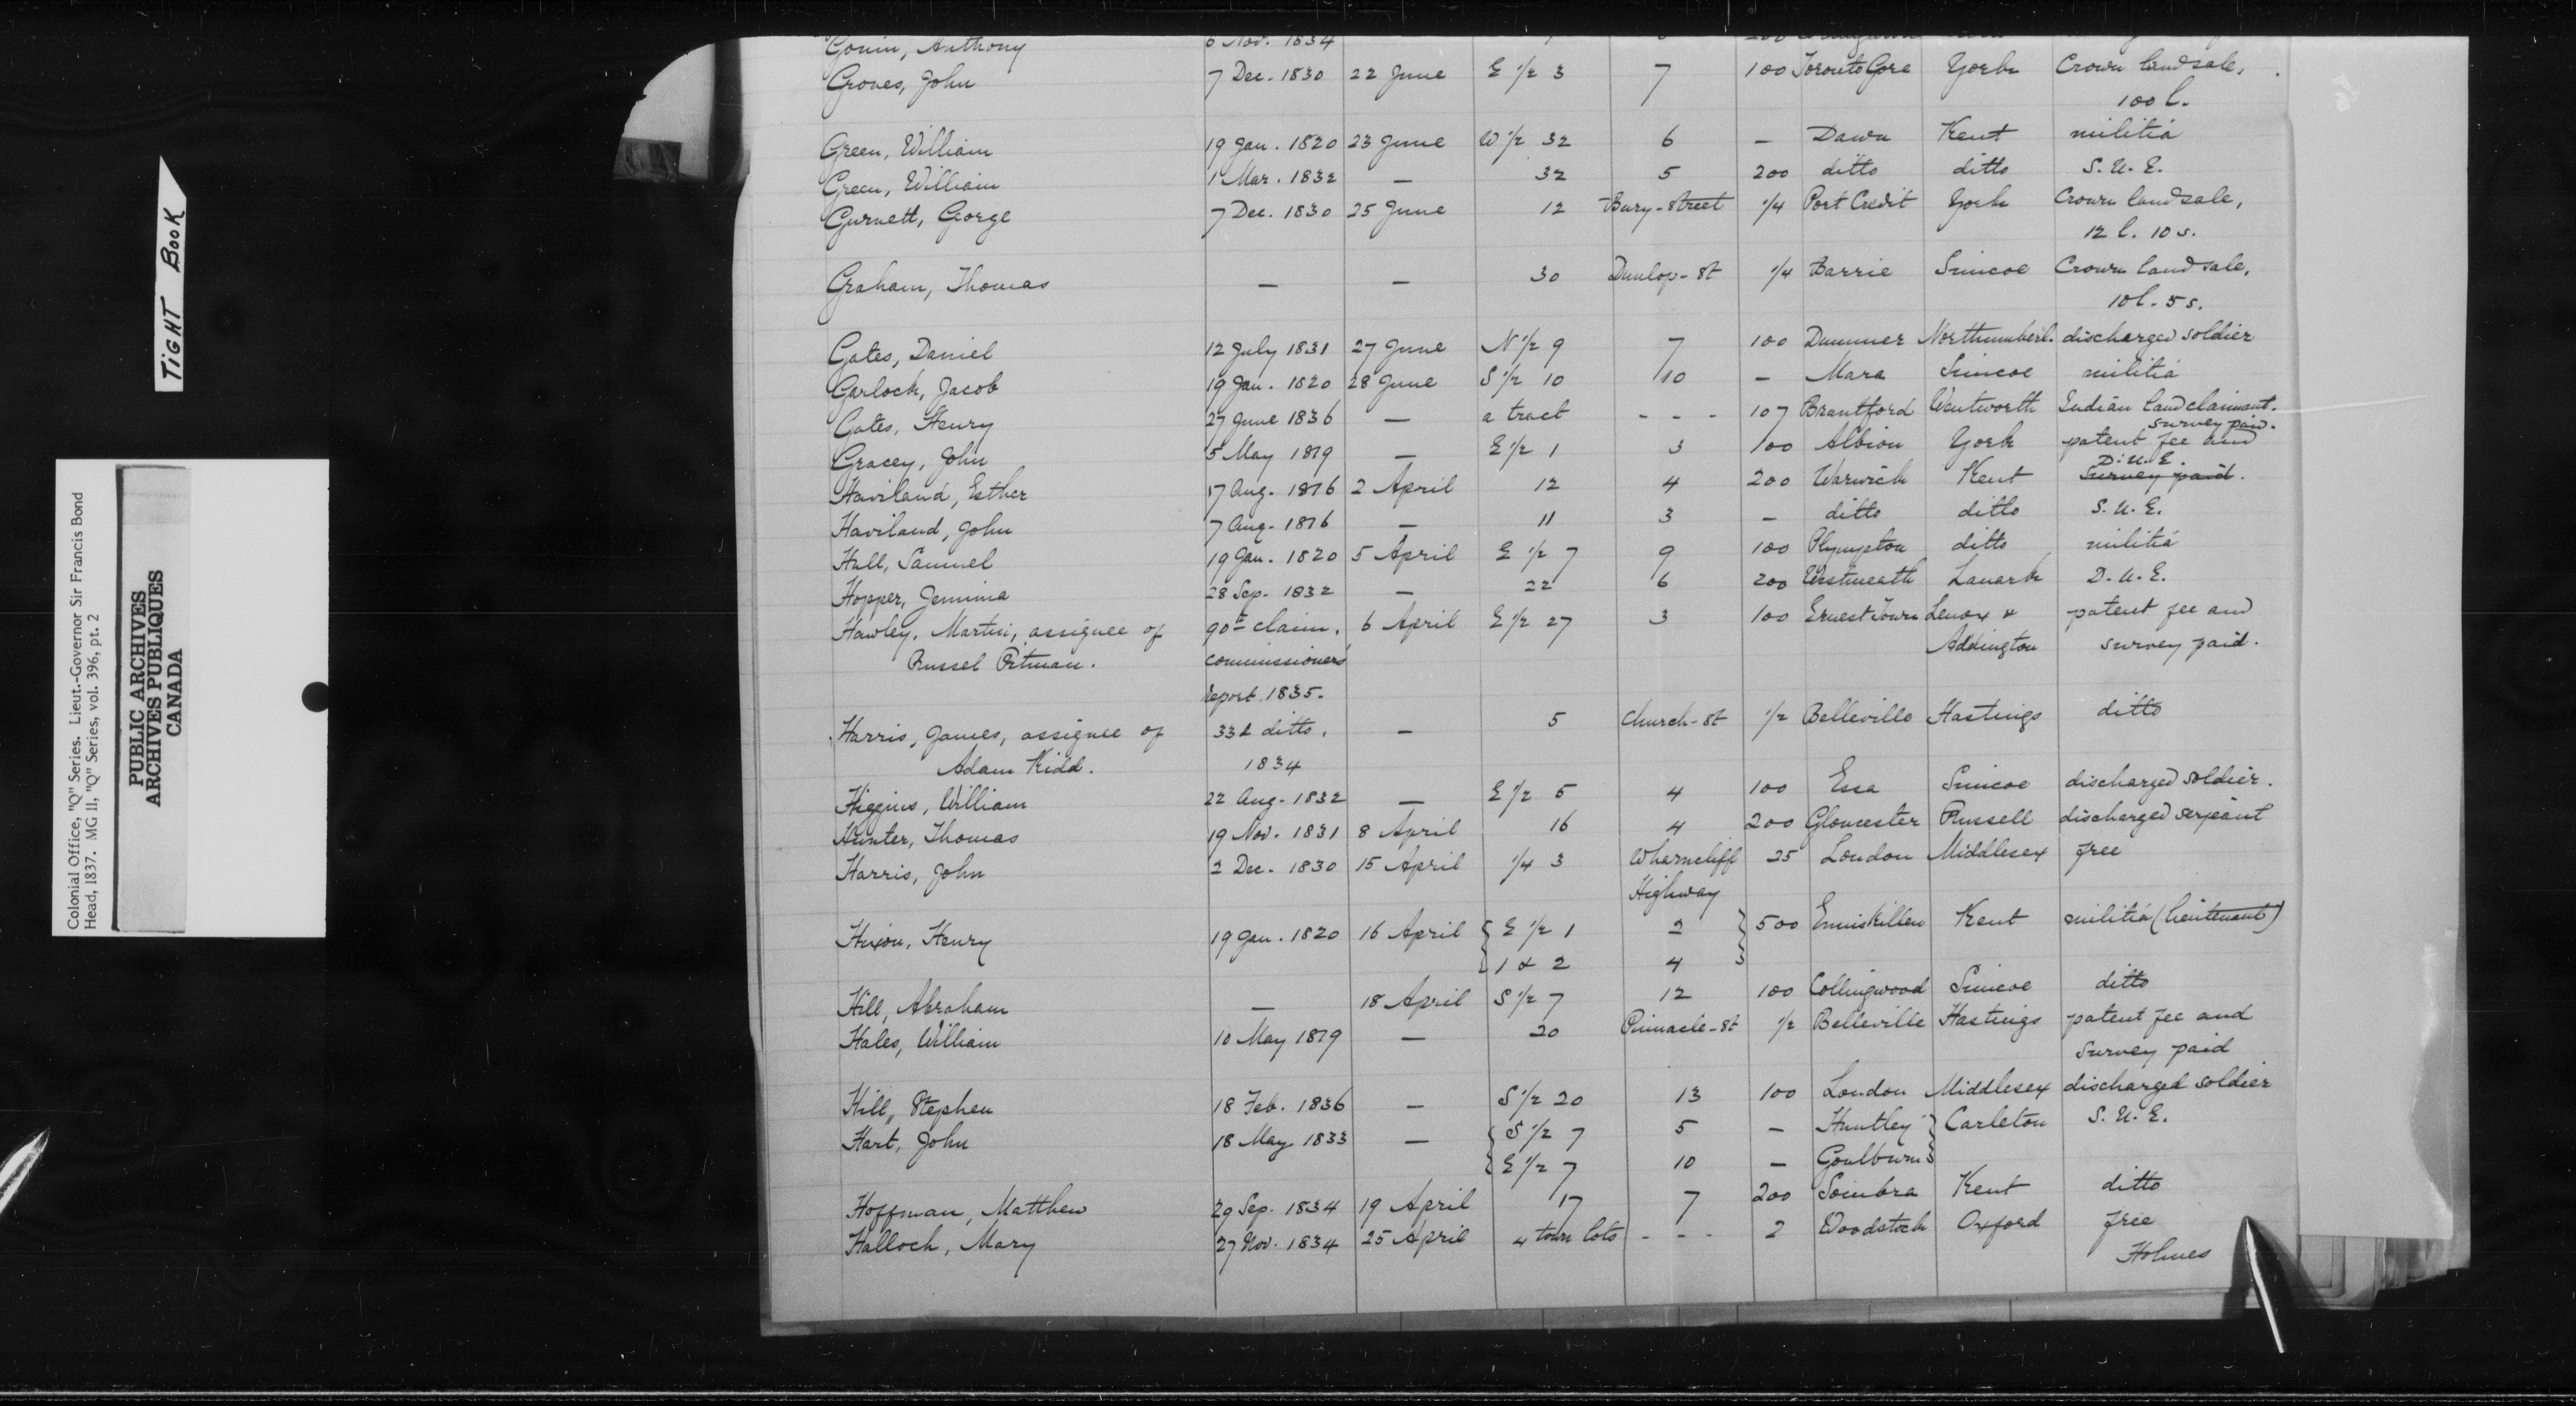 TIGHT BOOK
Colonial Office, "Q" Series. Lieut.-Governor Sir Francis Bond
Head, 1837. MG 11, "Q" Series, vol. 396, pt. 2
PUBLIC ARCHIVES
ARCHIVES PUBLIQUES
CANADA
Anthony 6 Nov. 1834
Groves, John 7 Dec. 1830 22 June E 1/2 3 7 100 Toronto Gore York Crown land sale,
100 l.
Green, William 19 Jan. 1820 23 June W 1/2 32 6 — Dawn Kent militia
Green, William 1 Mar. 1832 — 32 5 200 ditto ditto S. U. E.
Gurnett, George 7 Dec. 1830 25 June 12 Bury-Street 1/4 Port Credit York Crown land sale,
12 l. 10 s.
Graham, Thomas — — 30 Dunlop-St 1/4 Barrie Simcoe Crown land sale,
10 l. 5 s.
Gates, Daniel 12 July 1831 27 June N 1/2 9 7 100 Dummer Northumberl. discharged soldier
Garlock, Jacob 19 Jan. 1820 28 June S 1/2 10 10 — Mara Simcoe militia
Gates, Henry 27 June 1836 — a tract - - - 107 Brantford Wentworth Indian land claimant.
survey paid.
Gracey, John 5 May 1819 — E 1/2 1 3 100 Albion York patent fee and
D. U. E.
Haviland, Esther 17 Aug. 1816 2 April 12 4 200 Warwick Kent survey paid.
Haviland, John 7 Aug. 1816 — 11 3 — ditto ditto S. U. E.
Hull, Samuel 19 Jan. 1820 5 April E 1/2 7 9 100 Plympton ditto militia
Hopper, Jemima 28 Sep. 1832 — 22 6 200 Westmeath Lanark D. U. E.
Hawley, Martin, assignee of 90th claim, 6 April E 1/2 27 3 100 Ernest Town Lenox & patent fee and
Russel Pitman. Commissioners' Addington survey paid.
Report 1835.
Harris, James, assignee of 33d ditto, — 5 Church-St 1/2 Belleville Hastings ditto
Adam Kidd. 1834
Higgins, William 22 Aug. 1832 — E 1/2 5 4 100 Essa Simcoe discharged soldier.
Hunter, Thomas 19 Nov. 1831 8 April 16 4 200 Gloucester Russell discharged serjeant
Harris, John 2 Dec. 1830 15 April 1/4 3 Wharncliff 25 London Middlesex free
Highway
Hixon, Henry 19 Jan. 1820 16 April { E 1/2 1 2 } 500 Enniskillen Kent militia (lieutenant)
{ 1 & 2 4 }
Hill, Abraham — 18 April S 1/2 7 12 100 Collingwood Simcoe ditto
Hales, William 10 May 1819 — 20 Pinnacle-St 1/2 Belleville Hastings patent fee and
survey paid
Hill, Stephen 18 Feb. 1836 — S 1/2 20 13 100 London Middlesex discharged soldier
Hart, John 18 May 1833 — { S 1/2 7 5 — Huntley } Carleton S. U. E.
{ E 1/2 7 10 — Goulburn }
Hoffman, Matthew 29 Sep. 1834 19 April 17 7 200 Sombra Kent ditto
Halloch, Mary 27 Nov. 1834 25 April 4 town lots - - - 2 Woodstock Oxford free
Holmes